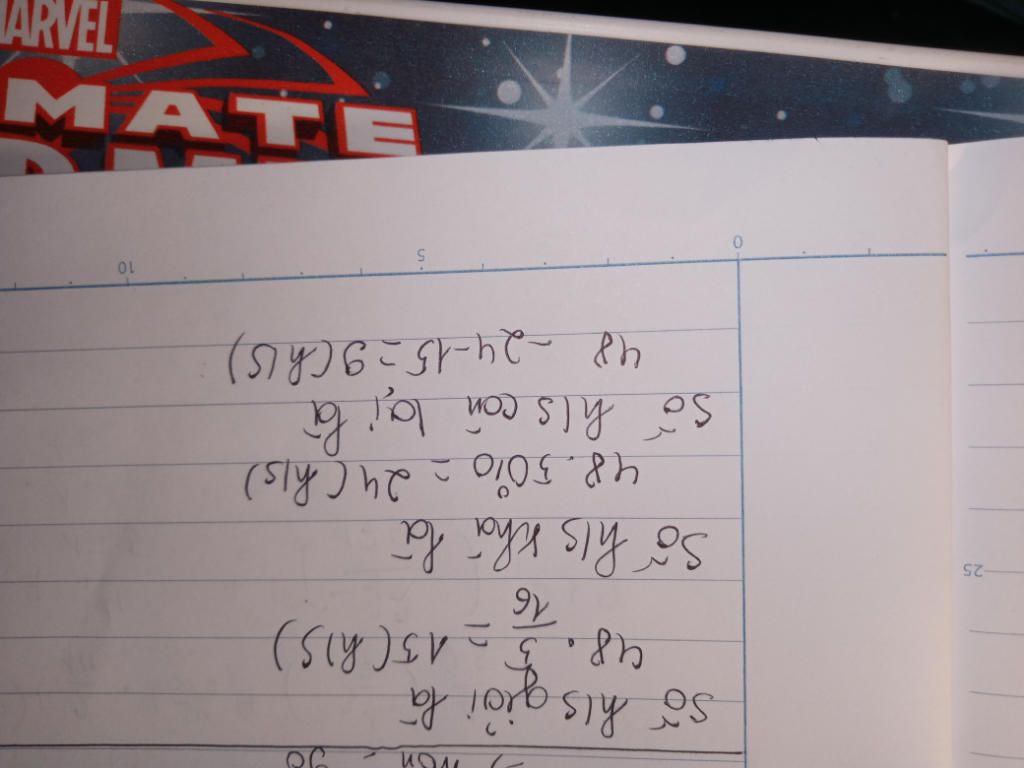 MARVEL
MATE
0
5
10
25
90
Số h/s giỏi là
48 . 5/16 = 15 (h/s)
Số h/s khá là
48 . 50% = 24 (h/s)
Số h/s còn lại là
48 - 24 - 15 = 9 (h/s)